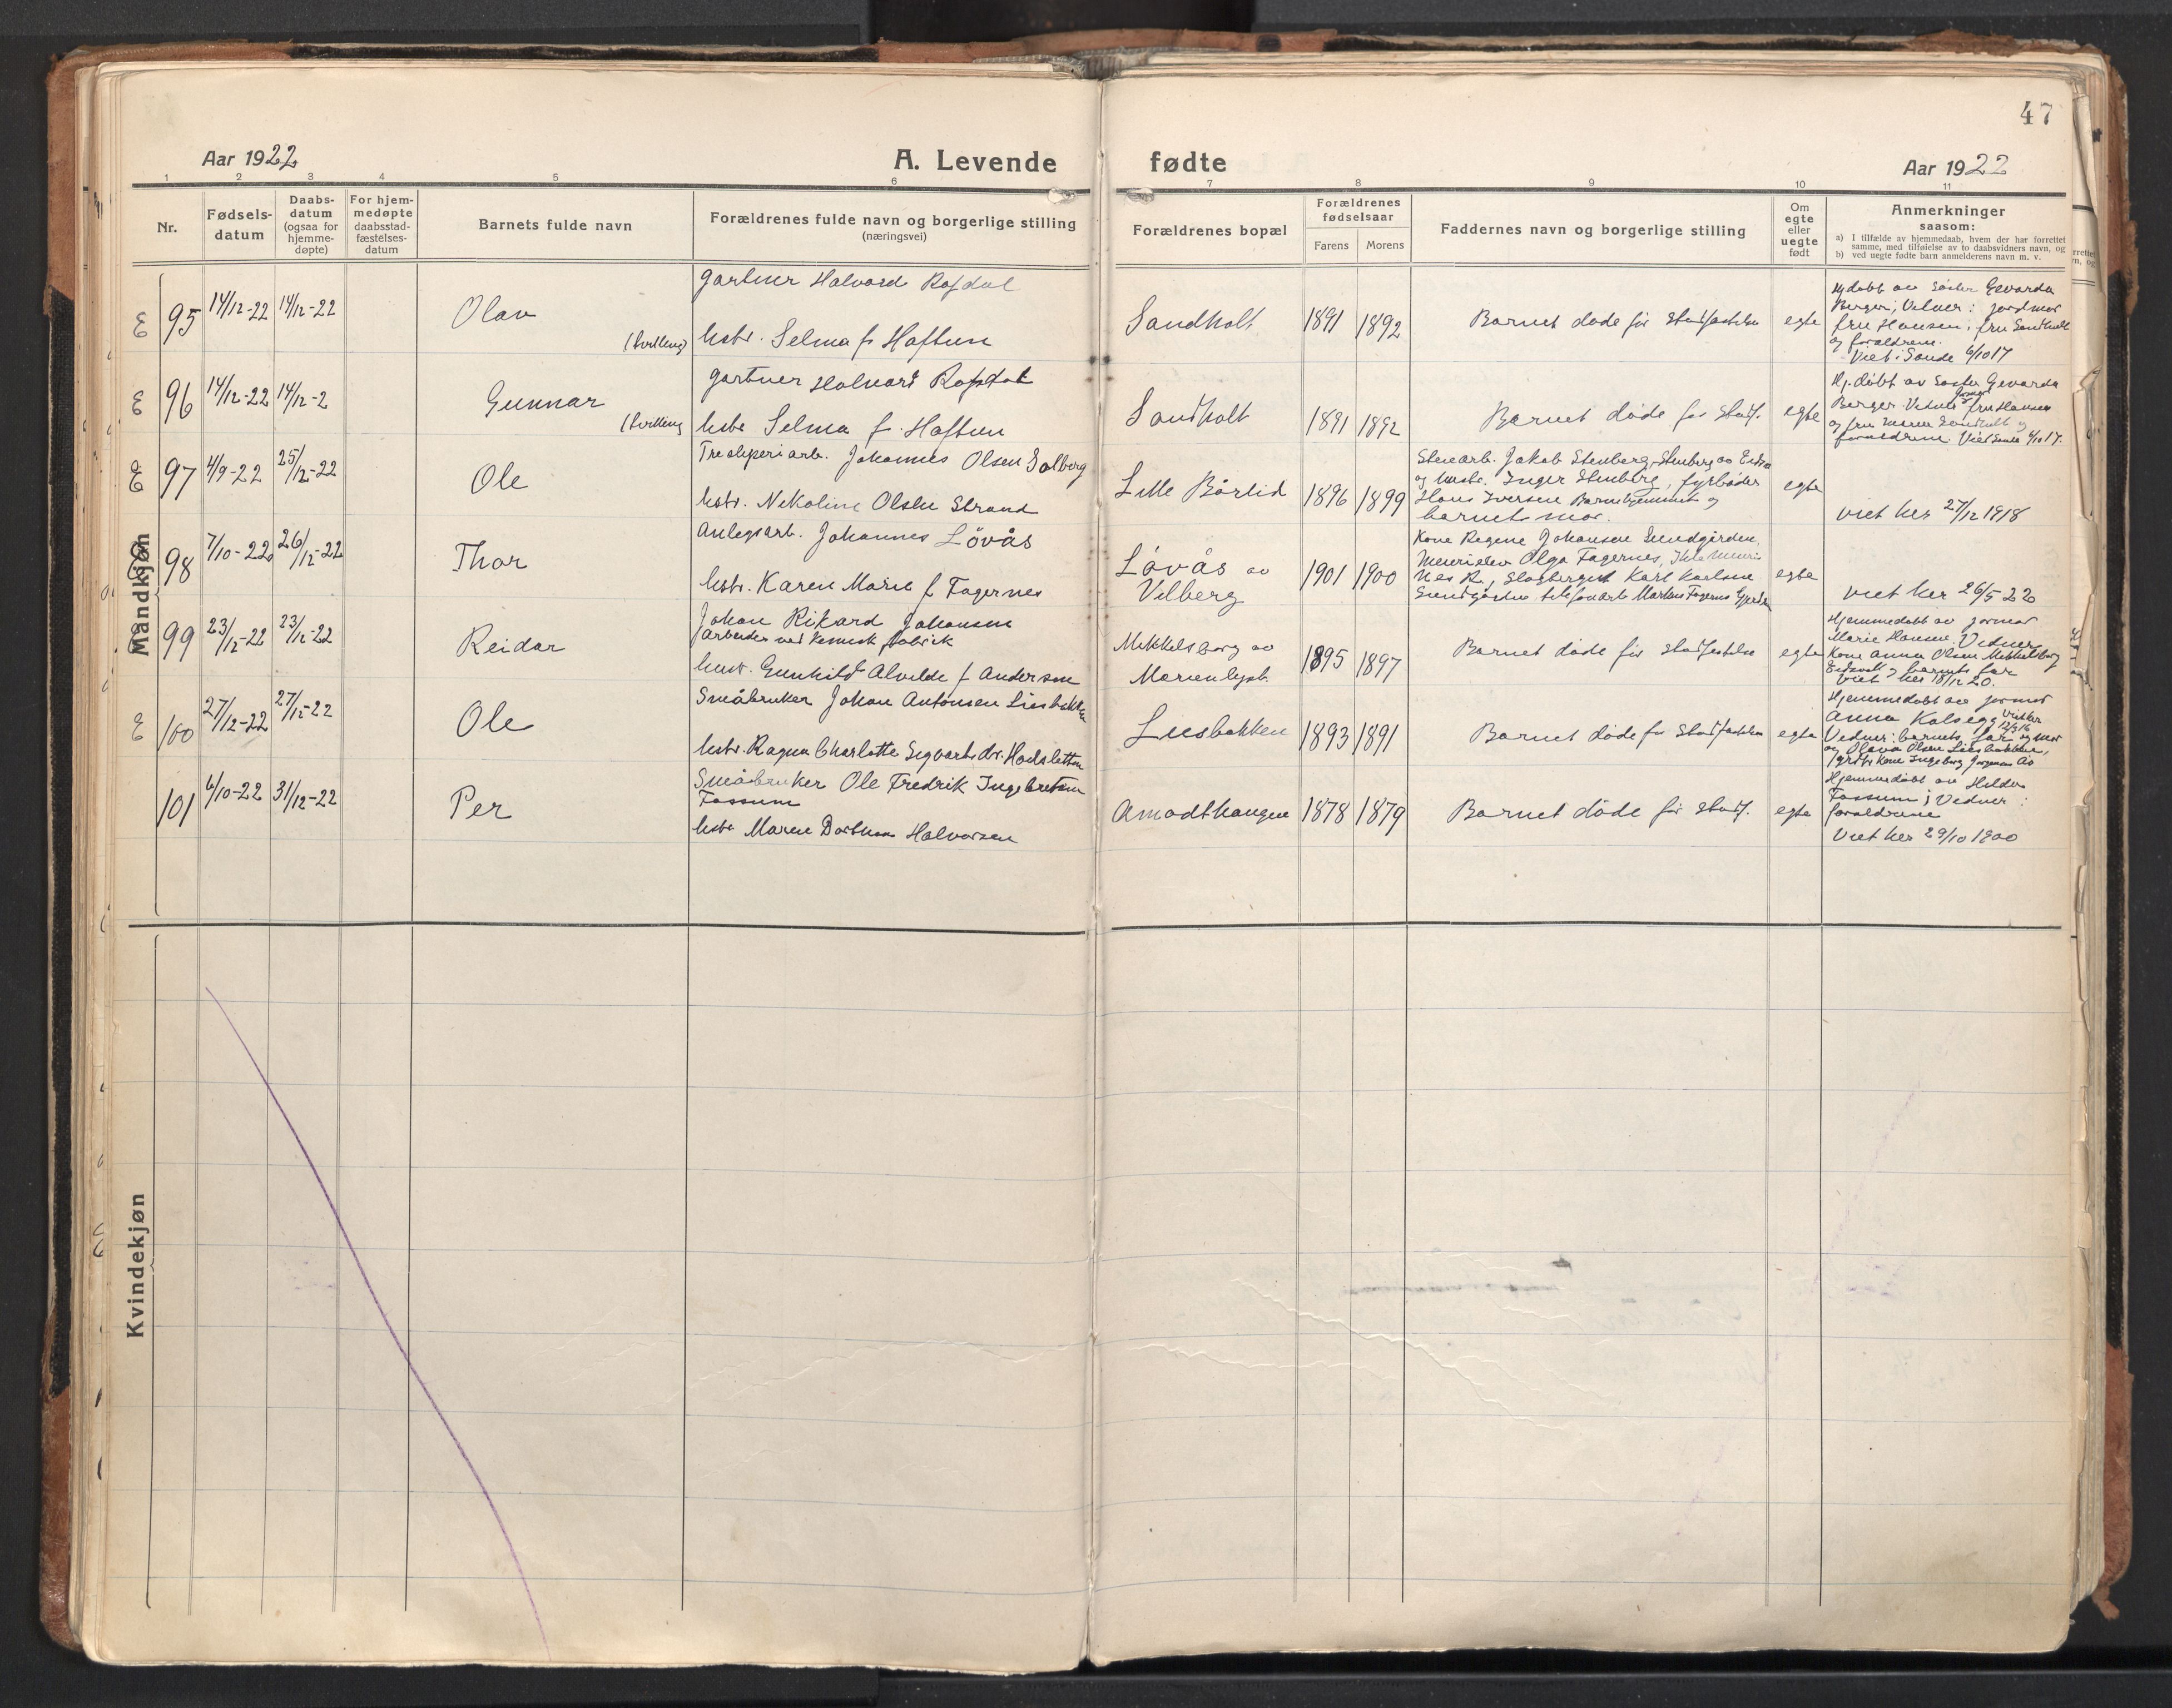 47
Aar 1922
A. Levende fødte
Aar 1922
1 2 3 4 5 6 7 8 9 10 11
Nr.
Fødsels-
datum
Daabs-
datum
(ogsaa for
hjemme-
døpte)
For hjem-
medøpte
daabsstad-
fæstelses-
datum
Barnets fulde navn
Forældrenes fulde navn og borgerlige stilling
(næringsvei)
Forældrenes bopæl
Forældrenes
fødselsaar
Farens Morens
Faddernes navn og borgerlige stilling
Om
egte
eller
uegte
født
Anmerkninger
saasom:
a) I tilfælde av hjemmedaab, hvem der har forrettet
samme, med tilføielse av to daabsvidners navn, og
b) ved uegte fødte barn anmelderens navn m. v.
Mandkjøn
E 95 14/12-22 14/12-22
Olav
(tvilling)
Gartner Halvard
hstr. Selma f. Haftun
Sandholt
1891 1892
Barnet døde før stadfæstelse
egte
Hj.døbt av søster Gevarda
Berger; Vidner: jordmor
fru Hansen, fru Sandholt
og forældrene.
Viet i Sande 6/10 17
E 96 14/12-22 14/12-2
Gunnar
(tvilling
Gartner Halvard
hstr Selma f. Haftun
Sandholt
1891 1892
Barnet døde før stadf.
egte
Hj. døbt av søster Gevarda
Berger. Vidner fru Hansen
og fru Sandholt og
forældrene Viet Sande 6/10 17.
E 97 4/9-22 25/12-22
Ole
Træsliperiarb. Johannes Olsen Solberg
hstr. Nikoline Olsen Strand
Lille Børlid
1896 1899
Stenarb. Jakob Stenberg, Stenberg av
og hustr. Inger Stenberg, fyrbøder
Hans Iversen Barnehjemmet og
barnets mor.
egte
viet her 27/12 1918
98 7/10-22 26/12-22
Thor
Anlegsarb. Johannes Løvås
hstr. Karen Marie f. Fagernes
Løvås av
Vilberg
1901 1900
Kone Regine Johansen Sundgården,
Olga Fagernes,
Karl Karlsen
telefonarb Markus Fagernes
egte
viet her 26/5 22
99 23/12-22 23/12-22
Reidar
Johan Rikard Johansen
arbeider ved kemisk fabrik
hust. Gunhild Alvilde f Andersen
Mikkelsborg av
Marienlyst
1895 1897
Barnet døde før stadfæstelse
egte
Hjemmedøbt av jormor
Marie Hansen. Vidner
Kone Anna Olsen Mikkelsborg
Eidsvoll og barnets far
Viet her 18/12 20.
E 100 27/12-22 27/12-22
Ole
Småbruker Johan Antonsen Liesbakken
hstr. Ragna Charlotte Sigvartsdtr.
Liesbakken
1893 1891
Barnet døde før stadfæstelse
egte
Hjemmedøbt av jormor
Anna Kolsegg
Vidner: barnets far og mor
og Olava Olsen Liesbakken,
kone Ingeborg
101 6/10-22 31/12-22
Per
Småbruker Ole Fredrik Ingebretsen
Fossum
hstr Maren Halvorsen
Amodthaugen
1878 1879
Barnet døde før stadf.
egte
Hjemmedøbt av Hilda
Fossum; Vidner:
forældrene
Viet her 29/10 1900
Kvindekjøn